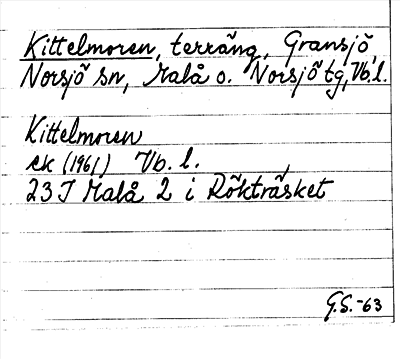 Kittelmoren, terräng, Gransjö,
Norsjö sn, Malå o. Norsjö tg, Vb.l.
Kittelmoren
ek (1961) Vb. l.
23 I Malå 2 i Rökträsket
G.S. -63